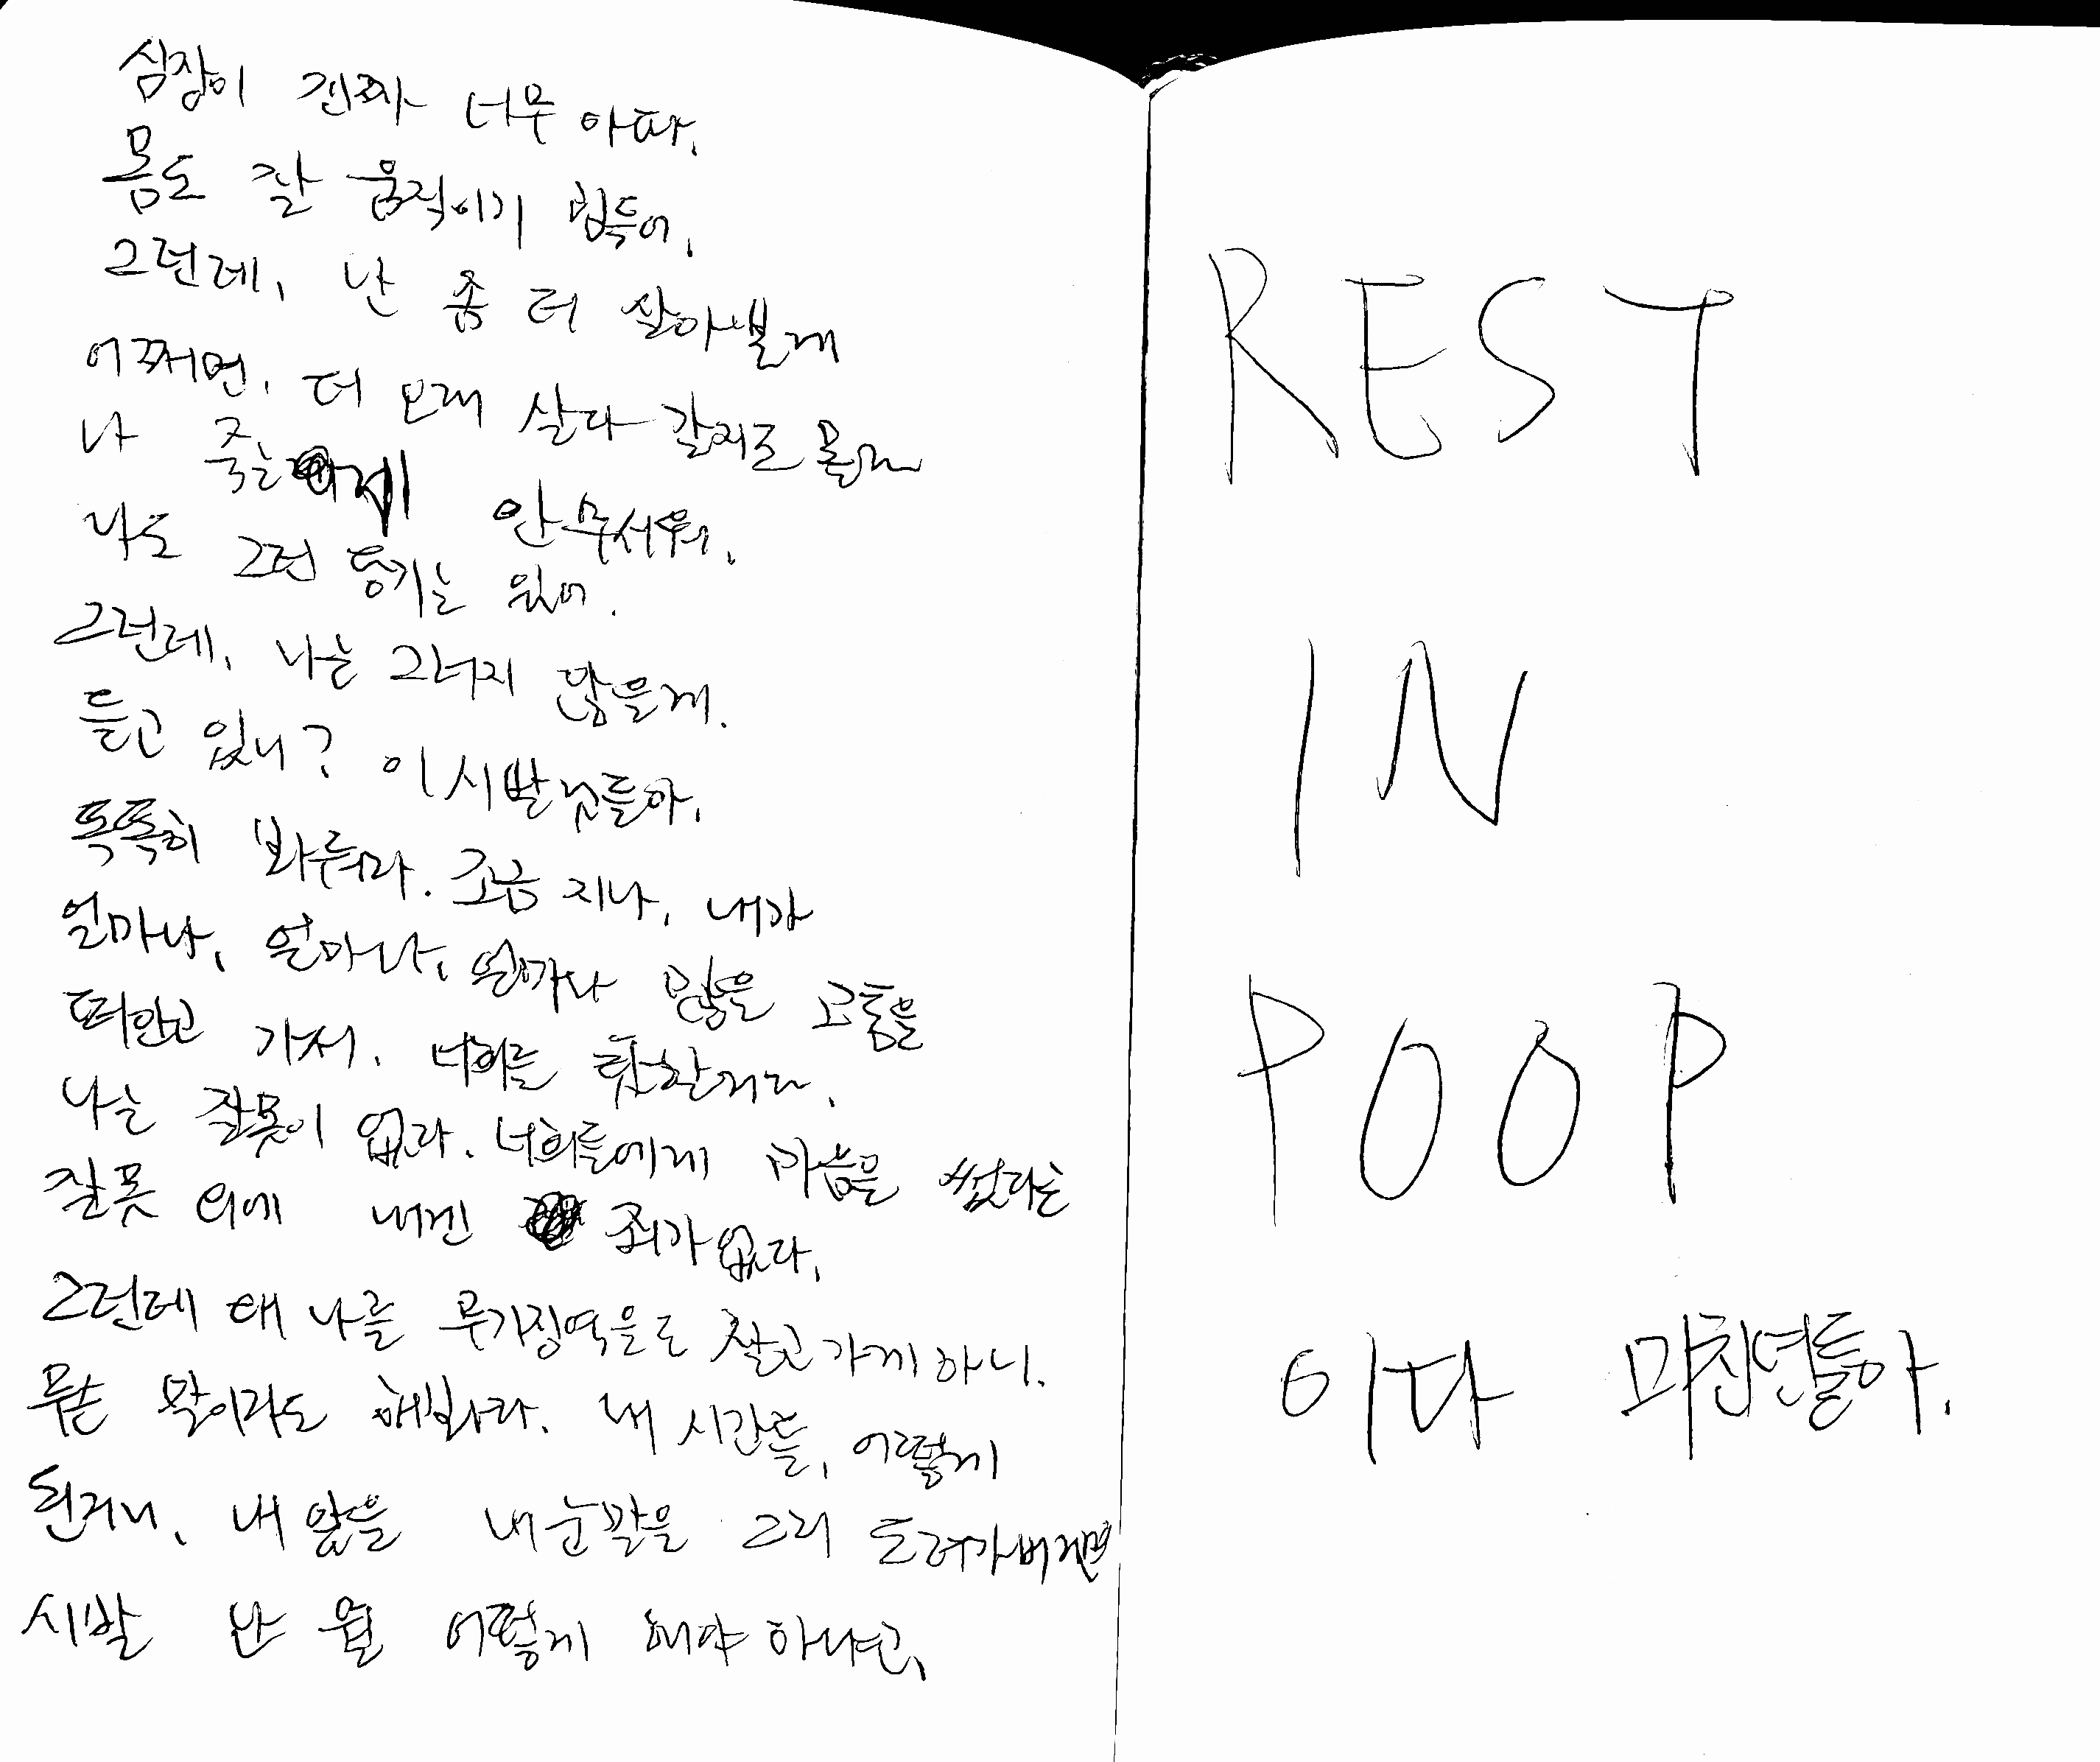 심장이 진짜 너무 아파.
몸도 잘 움직이기 힘들어.
그런데, 난 좀 더 살아볼게
어쩌면, 더 오래 살다 갈지도 몰라
나 죽는게 안무서워.
나도 그런 용기는 있어.
그런데, 나는 그러지 않을게.
듣고 있니? 이 시발놈들아.
똑똑히 봐둬라. 조금 지나, 내가
얼마나, 얼마나, 얼마나 많은 고통을
떠안고 가서, 너희를 탓할거다.
나는 잘못이 없다. 너희들에게 마음을 썼다는
잘못 외에 내겐 죄가 없다.
그런데 왜 나를 무기징역으로 살고 가게 하니.
무슨 말이라도 해봐라. 내 시간들, 어떻게
된거니, 내 앞을 내 눈팔을 그리 도려가버리면
시발 난 뭘 어떻게 해야 하냐고,
REST
IN
POOP
이다 미친년들아.